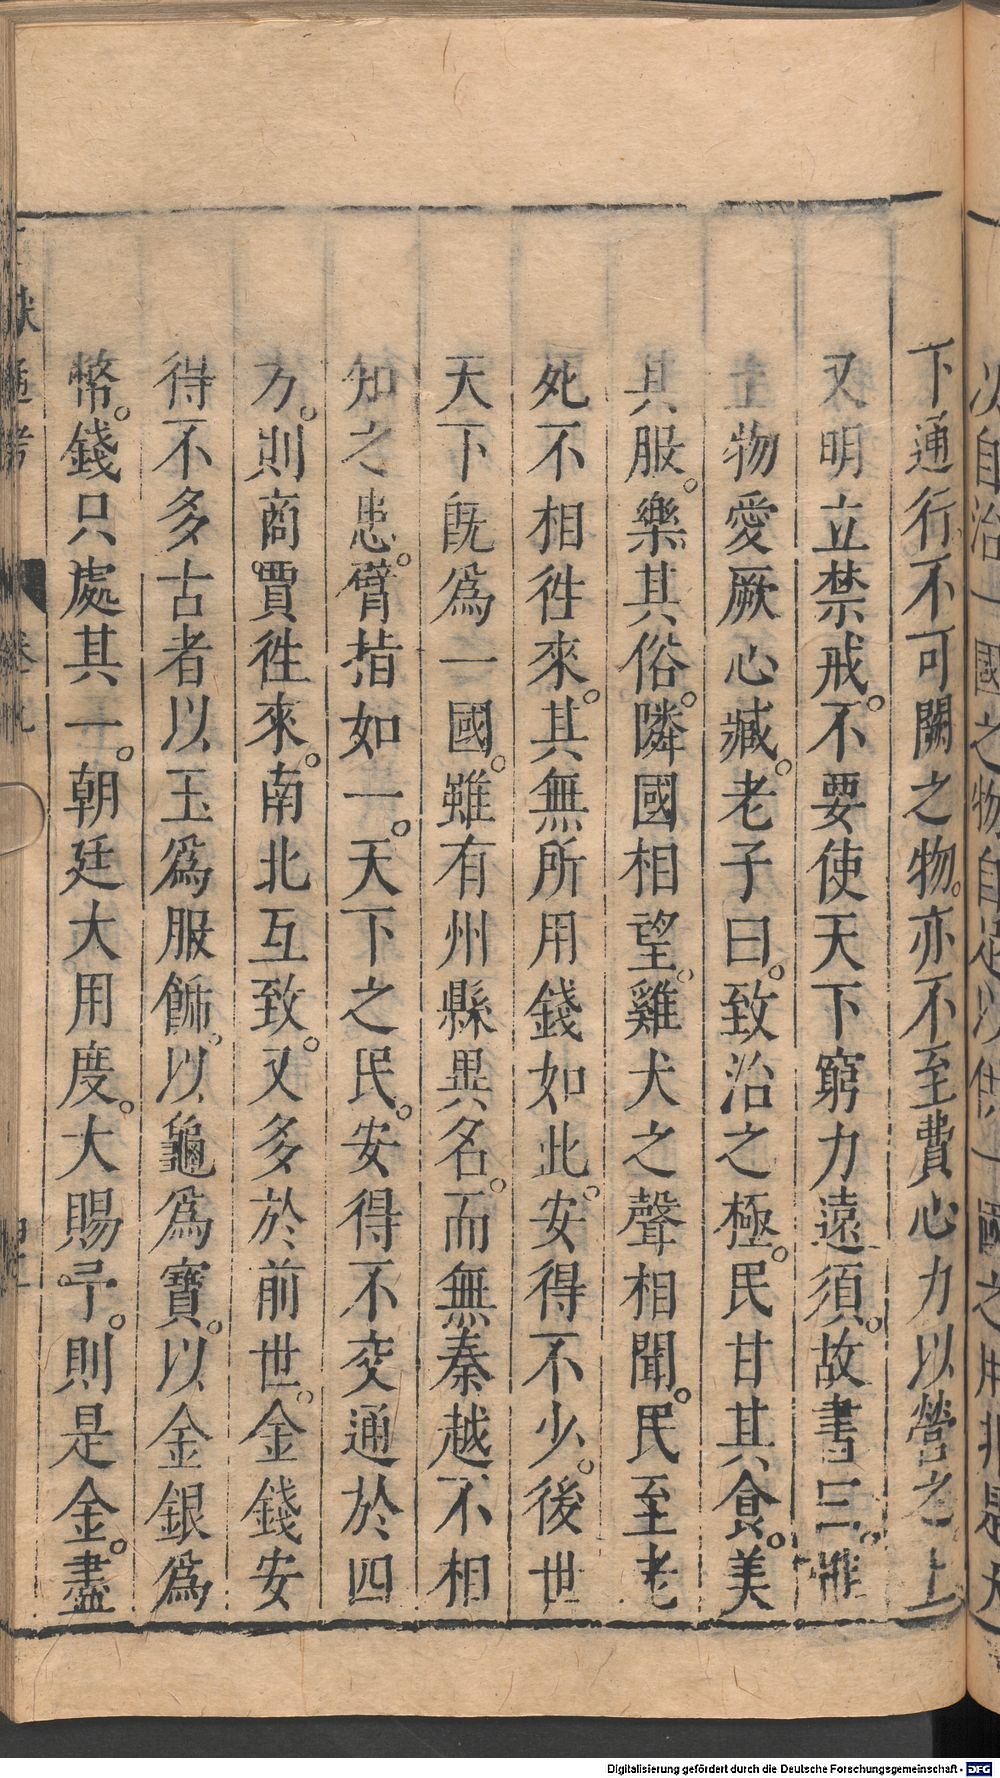 下通行。不可闕之物。亦不至費心力以營之上
又明立禁戒。不要使天下窮力遠須。故書三。惟
土物愛厥心臧。老子曰。致治之極。民甘其食。美
其服。樂其俗。隣國相望。雞犬之聲相聞。民至老
死不相徃來。其無所用錢如此。安得不少。後世
天下旣爲一國。雖有州縣異名。而無秦越不相
知之患。臂指如一。天下之民。安得不交通於四
方。則商賈徃來。南北互致。又多於前世。金錢安
得不多古者以玉爲服飾。以龜爲寶。以金銀爲
幣。錢只處其一。朝廷大用度。大賜予。則是金。盡
通考
卷九
Digitalisierung gefördert durch die Deutsche Forschungsgemeinschaft - DFG